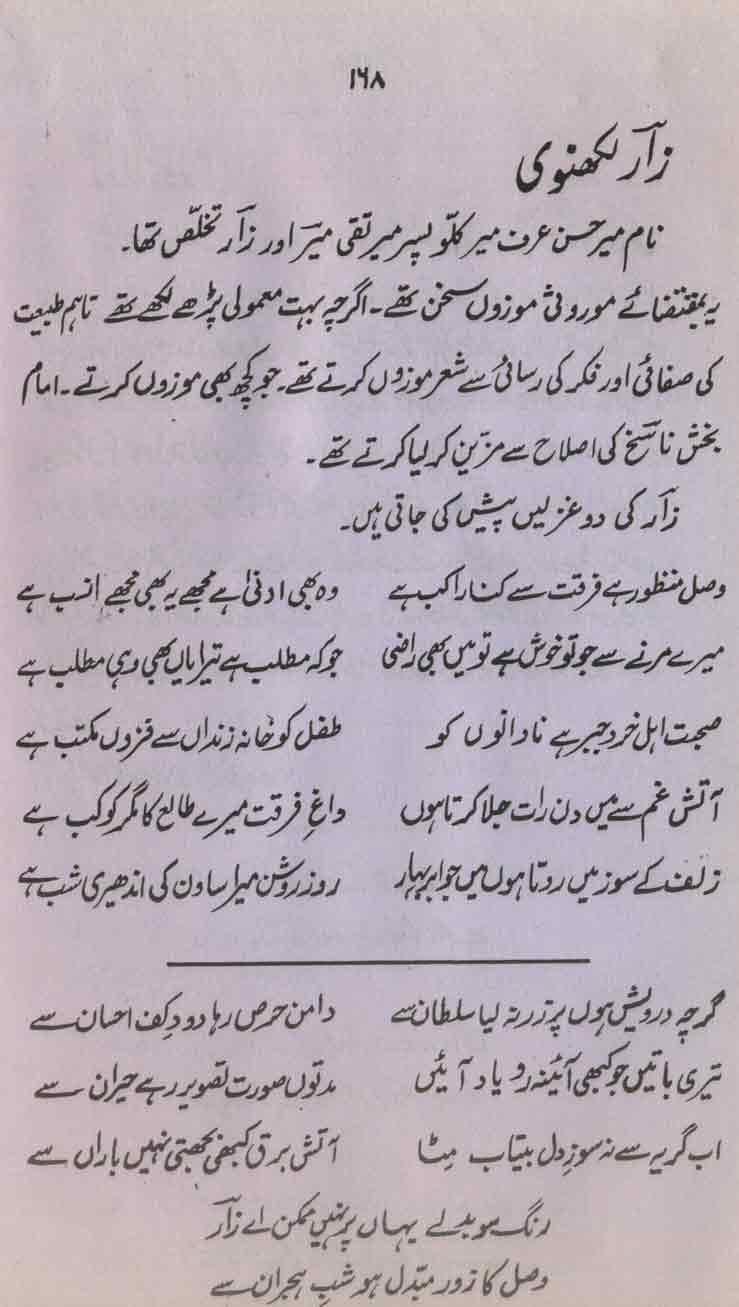 ۱۶۸
زآر لکھنوی
نام میر حسن عرف میر کلّو پسر میر تقی میرؔ اور زآر تخلّص تھا۔
یہ بمقتضائے موروثی موزوں سخن تھے۔ اگرچہ بہت معمولی پڑھے لکھے تھے تاہم طبیعت
کی صفائی اور فکر کی رسائی سے شعر موزوں کرتے تھے۔ جو کچھ بھی موزوں کرتے۔ امام
بخش ناسخ کی اصلاح سے مزّین کر لیا کرتے تھے۔
زآر کی دو غزلیں پیش کی جاتی ہیں۔
وصل منظور ہے فرقت سے کنارا کب ہے وہ بھی ادنیٰ ہے مجھے یہ بھی مجھے انسب ہے
میرے مرنے سے جو تو خوش ہے تو میں بھی راضی جو کہ مطلب ہے تیرا یاں بھی وہی مطلب ہے
صحبت اہل خرد جبر ہے نادانوں کو طفل کو خانہ زنداں سے فزوں مکتب ہے
آتش غم سے میں دن رات جلا کرتا ہوں داغِ فرقت میرے طالع کا مگر کوکب ہے
زلف کے سوز میں روتا ہوں میں جو ابر بہار روز روشن میرا ساون کی اندھیری شب ہے
گرچہ درویش ہوں پر زر نہ لیا سلطان سے دامن حرص رہا دور کف احسان سے
تیری باتیں جو کبھی آئینہ رو یاد آئیں مدتوں صورت تصویر رہے حیران سے
اب گریہ سے نہ سوزِ دل بیتاب مِٹا آتش برق کبھی بجھتی نہیں باراں سے
رنگ سو بدلے یہاں پر نہیں ممکن اے زآر
وصل کا زور مبّدل ہو شبِ ہجران سے